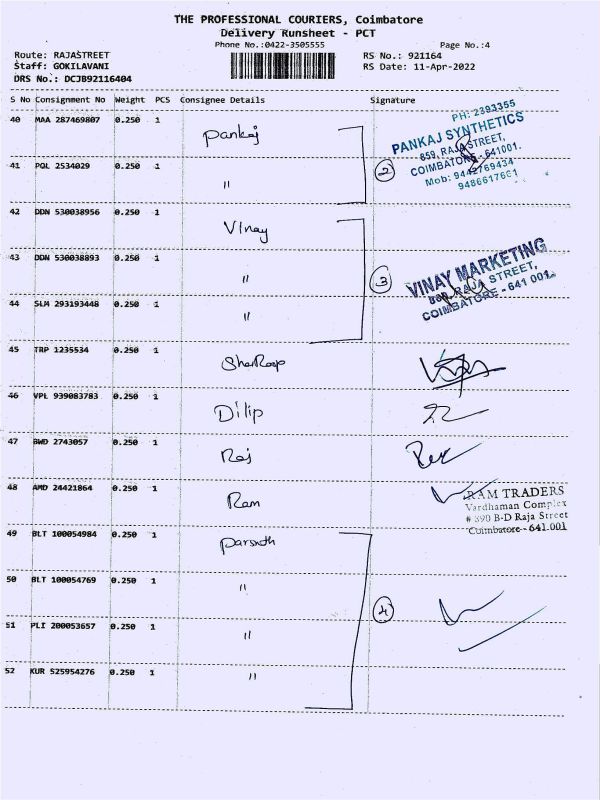 THE PROFESSIONAL COURIERS, Coimbatore
Delivery Runsheet - PCT
Phone No.:0422-3505555
Page No.:4
Route: RAJASTREET
RS No.: 921164
Staff: GOKILAVANI
RS Date: 11-Apr-2022
DRS No.: DCJB92116404
S No Consignment No Weight PCS Consignee Details Signature
40 MAA 287469807 0.250 1 Pankaj
PH: 2393355
PANKAJ SYNTHETICS
859, RAJA STREET,
COIMBATORE - 641001.
Mob: 9442769434
9486617661
41 POL 2534029 0.250 1 "
2
42 DDN 530038956 0.250 1 Vinay
43 DDN 530038893 0.250 1 "
3
VINAY MARKETING
RAJA STREET,
COIMBATORE - 641 001.
44 SLM 293193448 0.250 1 "
45 TRP 1235534 0.250 1
46 VPL 939083783 0.250 1 Dilip
47 BWD 2743057 0.250 1 Raj
48 AMD 24421864 0.250 1 Ram
RAM TRADERS
Vardhaman Complex
# 890 B-D Raja Street
Coimbatore - 641.001
49 BLT 100054984 0.250 1 Parsnth
50 BLT 100054769 0.250 1 "
4
51 PLI 200053657 0.250 1 "
52 KUR 525954276 0.250 1 "